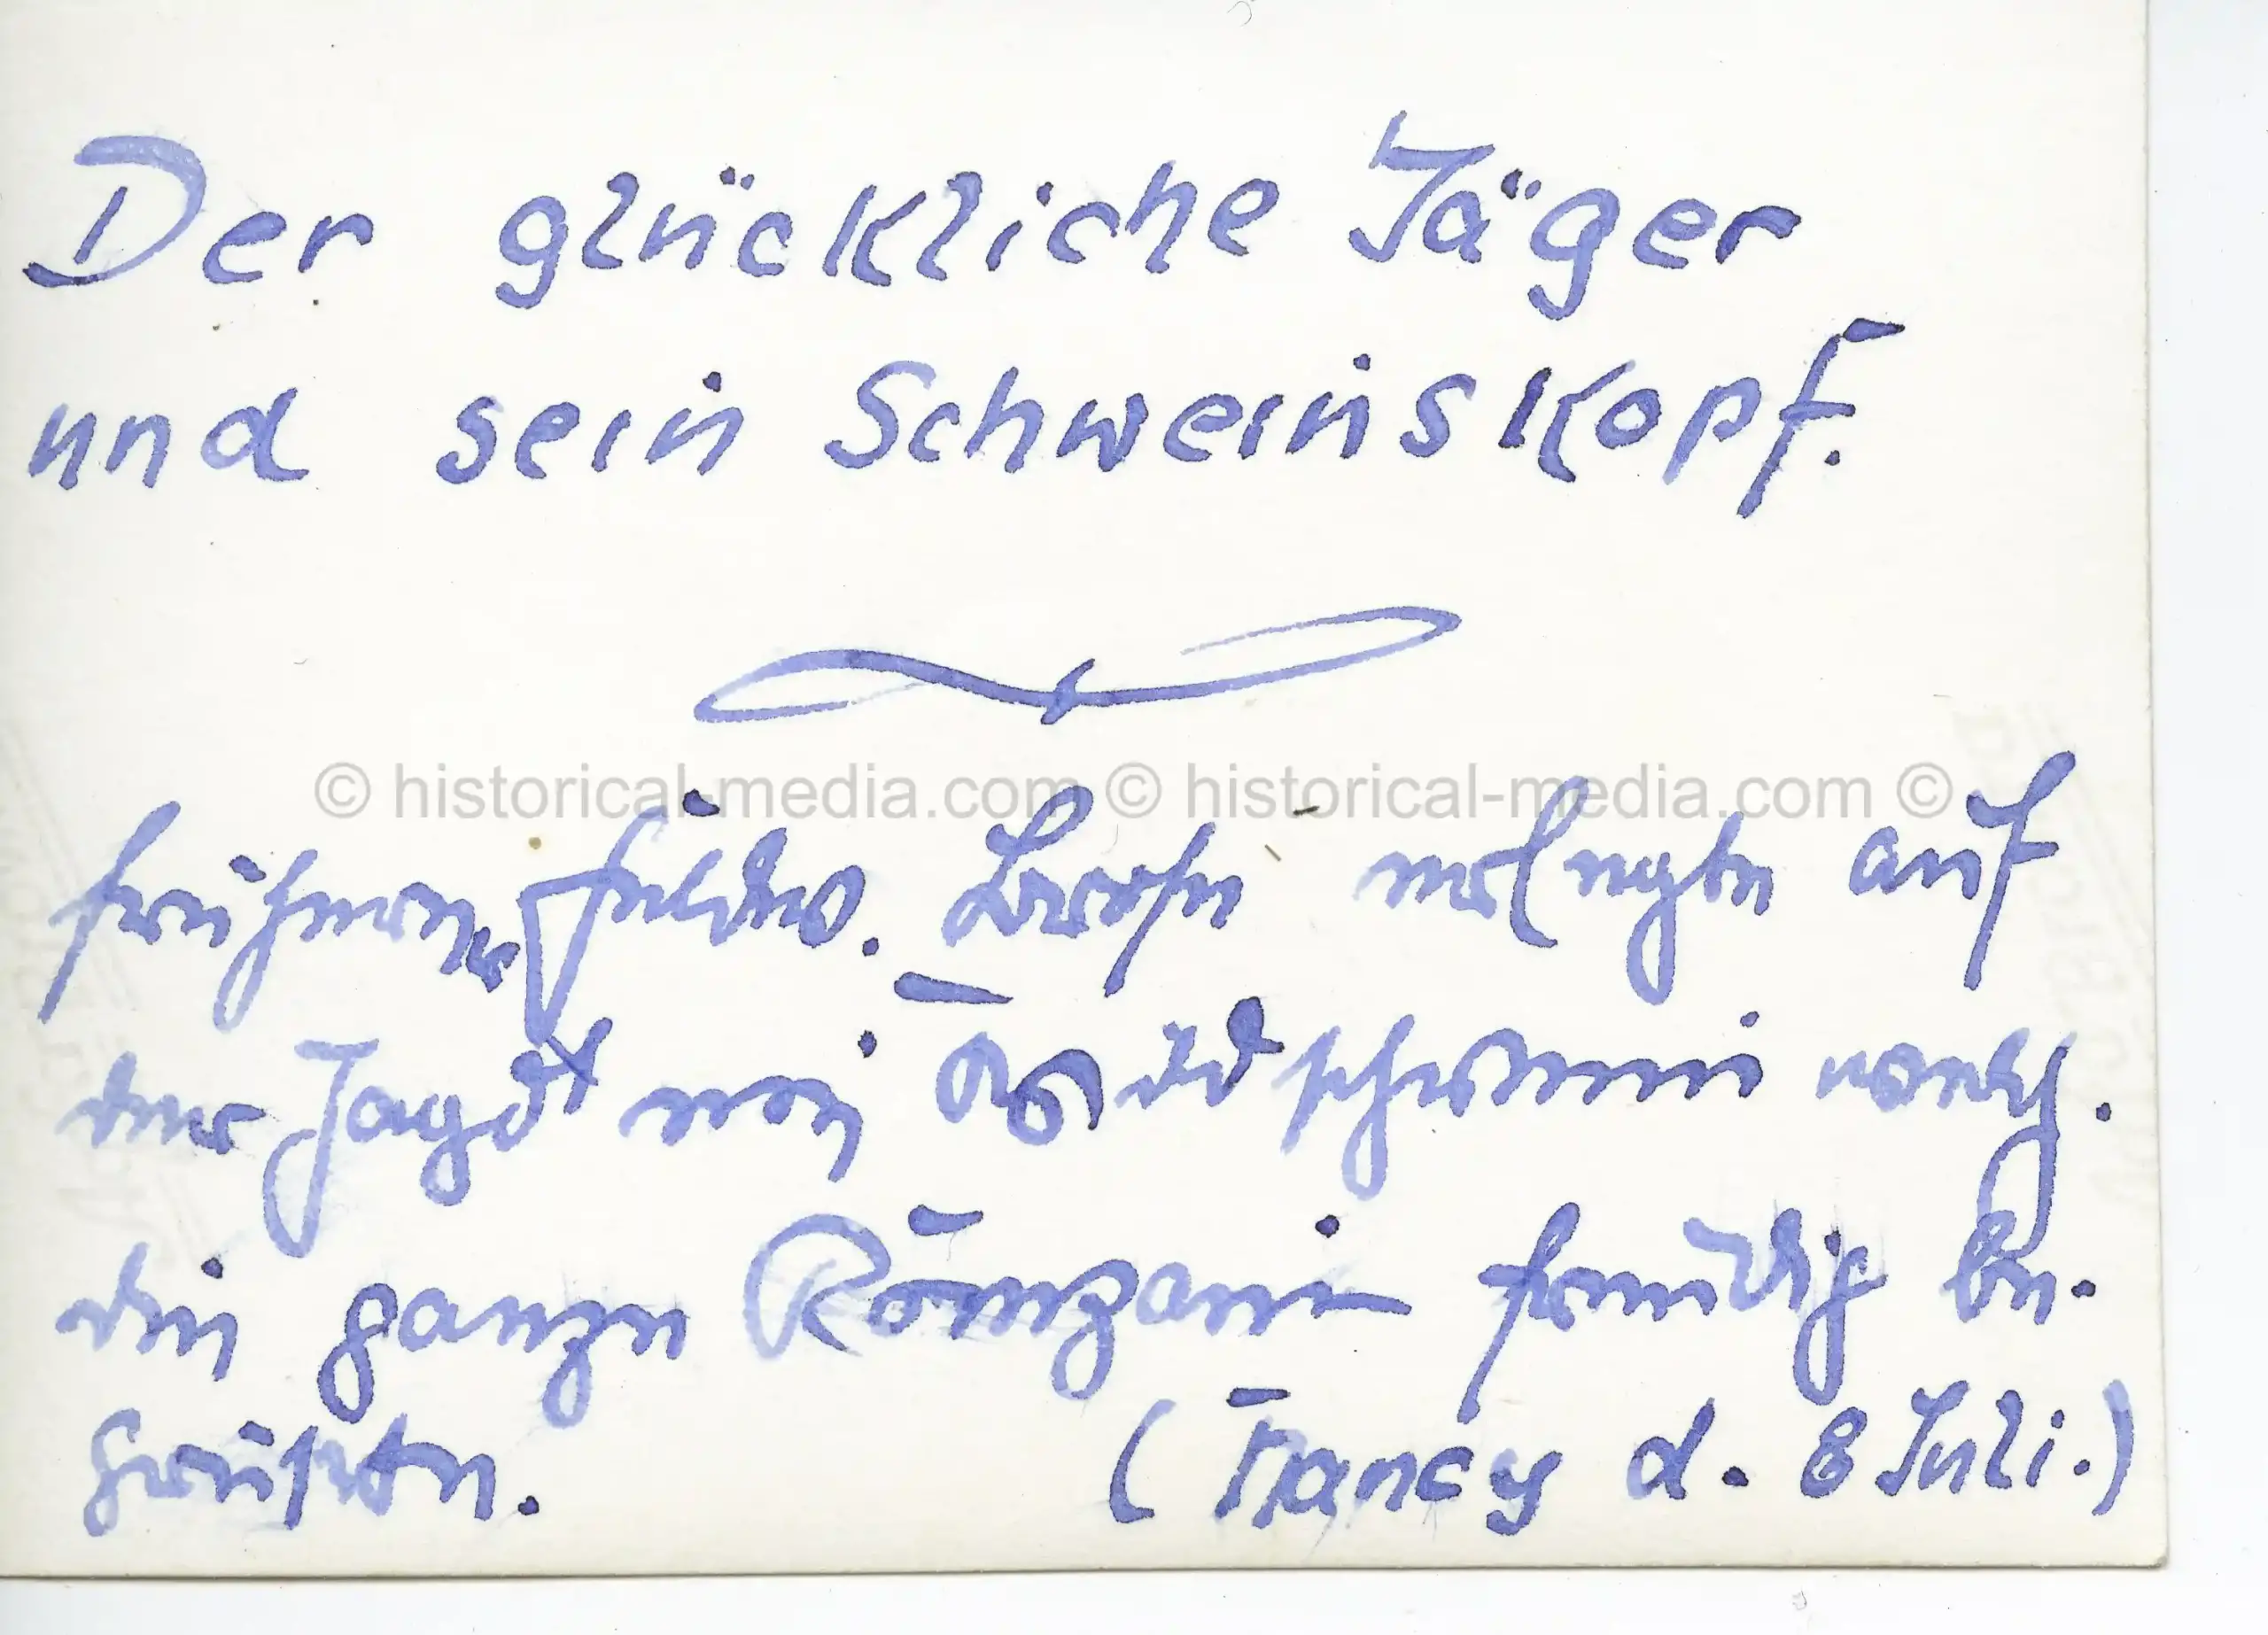 Der glückliche Jäger
und sein Schweinskopf.
© historical-media.com © historical-media.com ©
Feldw. erlegte auf
der Jagd ein Wildschwein
die ganze Kompanie freudig be-
grüßten. (Nancy d. 8 Juli.)